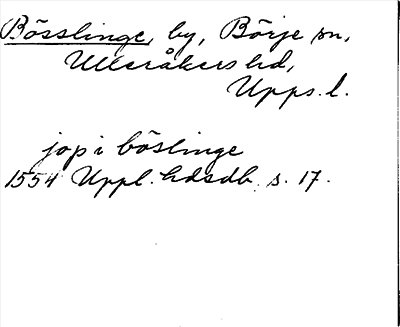 Bösslinge, by, Börje sn,
Ulleråkers hd,
Upps. l.
jop i böslinge
1554 Uppl. hdsdb. s. 17.